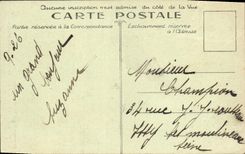 Aucune inscription n'est admise du côté de la Vue
CARTE POSTALE
Partie réservée à la Correspondance
Exclusivement réservé à l'Adresse
P. 26
un grand
bonjour
Suzanne
Monsieur
Champion
34 rue J. J. Rousseau
Issy les moulineaux
Seine